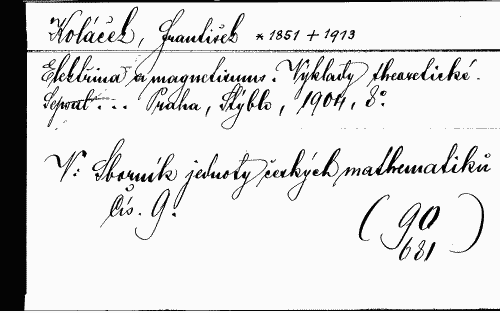 Koláček, František * 1851 + 1913
Elektřina a magnetismus. Výklady theoretické.
Sepsal... Praha, Rýble, 1904, 8°.
V: Sborník jednoty českých mathematiků
Čís. 9.
(90
681)